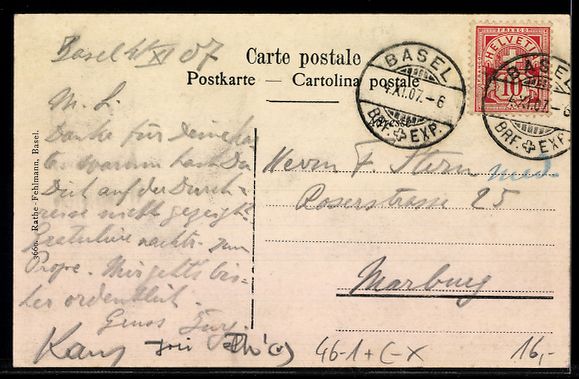 Basel 4/XI 07
Carte postale
Postkarte — Cartolina postale
BASEL
4.XI.07.-6
BRF. EXP.
FRANCO
HELVETIA
10
BASEL
4.XI.07.-6
BRF. EXP.
M. L.
Danke für Deine
warum hast Du
Dich auf der Durch-
reise nicht gezeigt.
zum
Mir geht's bis-
her ordentlich.
Gruss
Herrn F. Stern
med.
Roserstrasse 25
Marburg
3660. Rathe-Fehlmann, Basel.
46-1+C-X
16,-